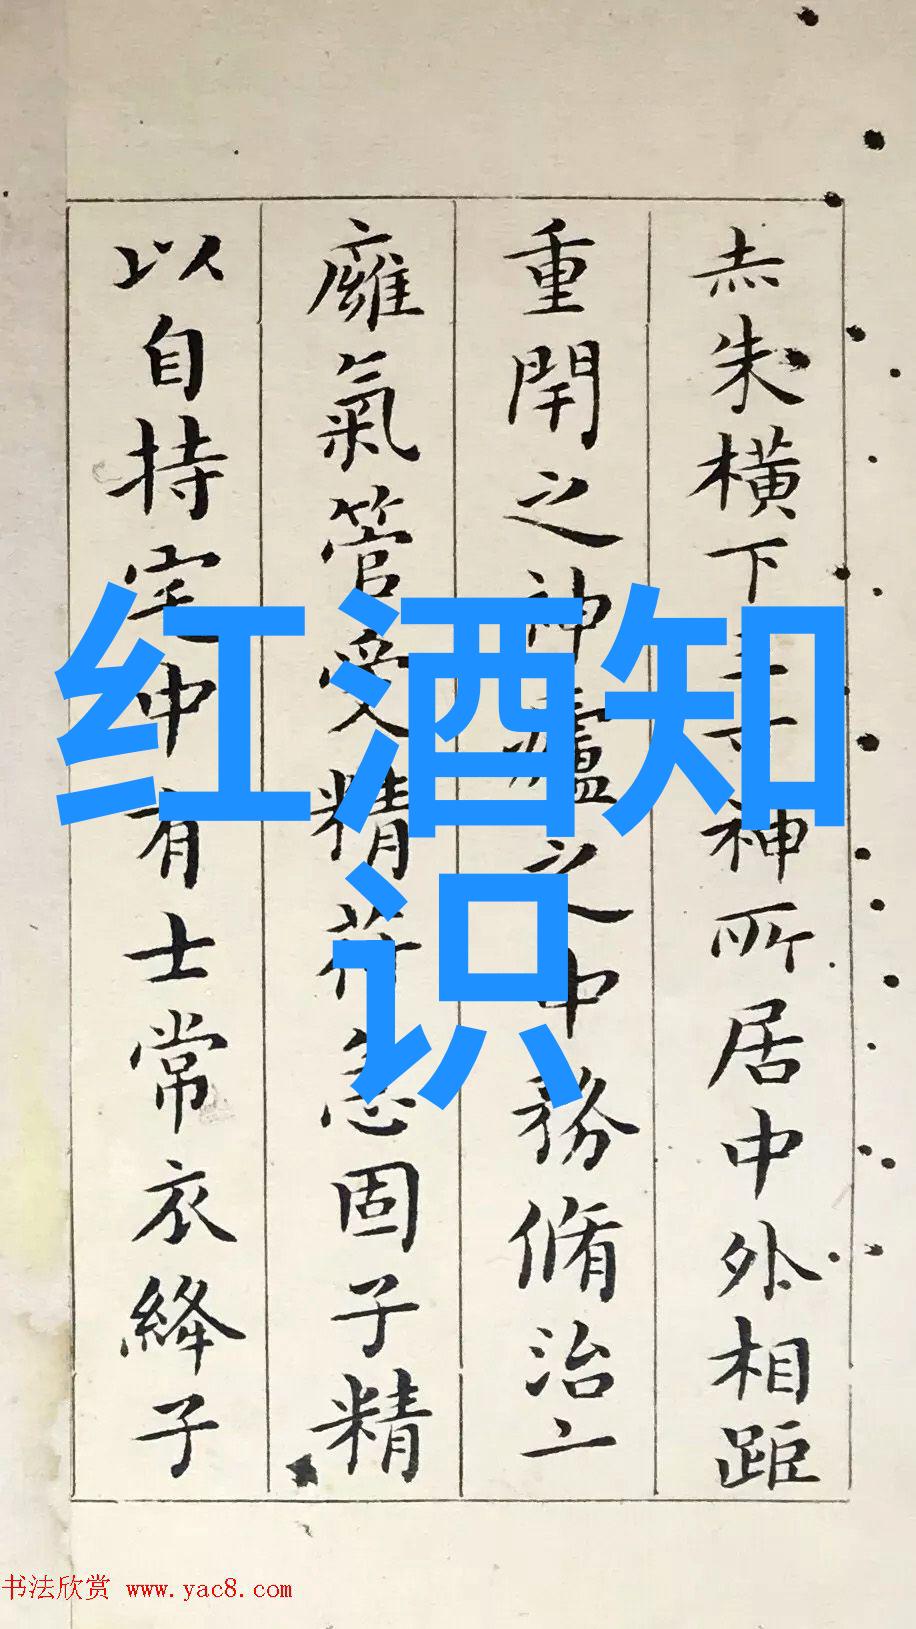 赤朱橫下三寸神所居中外相距
重閈之神廬之中務脩治二
癰氣管受精符急固子精
以自持宅中有士常衣絳子
红酒知
识
书法欣赏 www.yac8.com